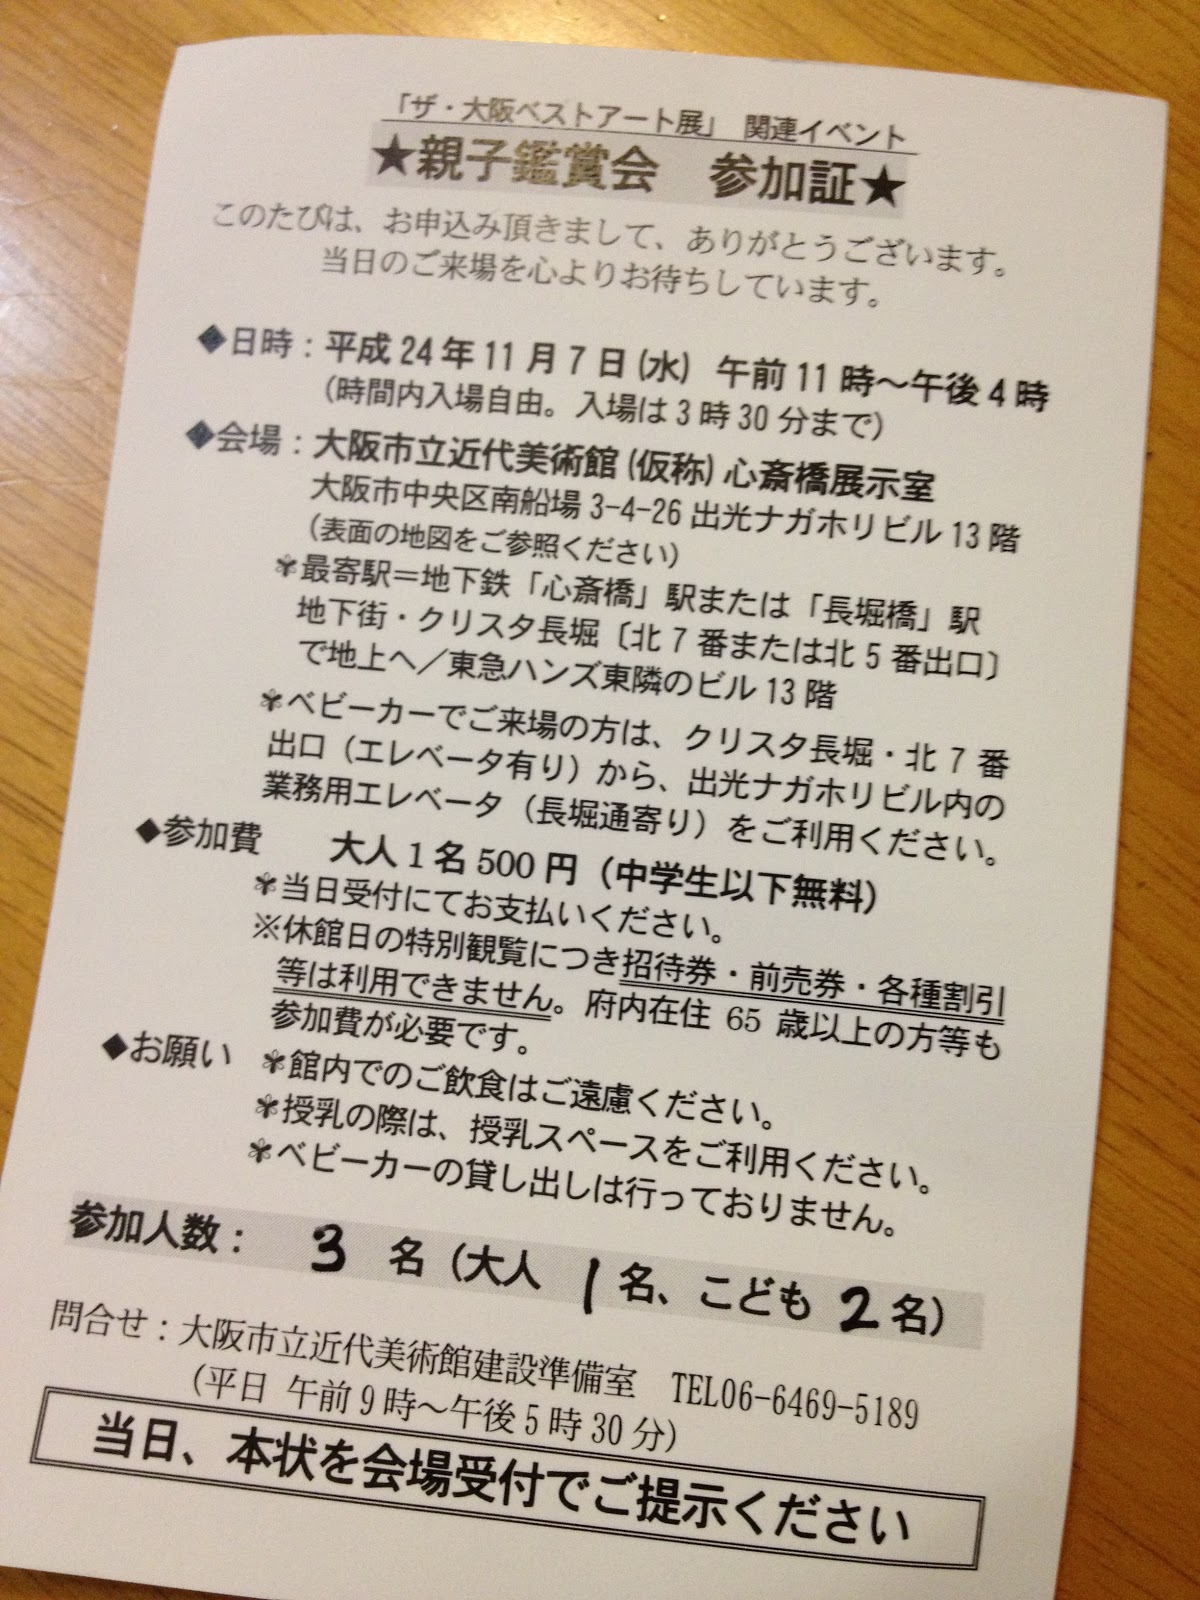 「ザ・大阪ベストアート展」 関連イベント
★親子鑑賞会 参加証★
このたびは、お申込み頂きまして、ありがとうございます。
当日のご来場を心よりお待ちしています。
◆日時：平成24年11月7日(水) 午前11時～午後4時
（時間内入場自由。入場は3時30分まで）
◆会場：大阪市立近代美術館(仮称)心斎橋展示室
大阪市中央区南船場3-4-26出光ナガホリビル13階
（表面の地図をご参照ください）
✾最寄駅＝地下鉄「心斎橋」駅または「長堀橋」駅
地下街・クリスタ長堀〔北7番または北5番出口〕
で地上へ／東急ハンズ東隣のビル13階
✾ベビーカーでご来場の方は、クリスタ長堀・北7番
出口（エレベータ有り）から、出光ナガホリビル内の
業務用エレベータ（長堀通寄り）をご利用ください。
◆参加費 大人1名500円（中学生以下無料）
✾当日受付にてお支払いください。
※休館日の特別観覧につき招待券・前売券・各種割引
等は利用できません。府内在住65歳以上の方等も
参加費が必要です。
◆お願い ✾館内でのご飲食はご遠慮ください。
✾授乳の際は、授乳スペースをご利用ください。
✾ベビーカーの貸し出しは行っておりません。
参加人数： 3 名（大人 1 名、こども 2 名）
問合せ：大阪市立近代美術館建設準備室 TEL06-6469-5189
（平日 午前9時～午後5時30分）
当日、本状を会場受付でご提示ください